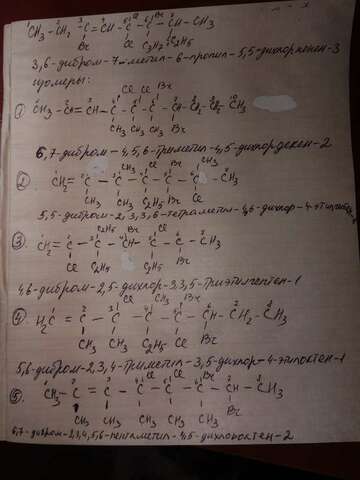 CH3 – CH2 – C = CH – C – C – CH – CH3
Br C3H7 C2H5
3,6-дибром-7-метил-6-пропил-5,5-дихлорнонен-3
изомеры:
Cl Cl Br
① CH3 – CH = CH – C – C – C – CH – CH2 – CH2 – CH3
CH3 CH3 CH3 Br
6,7-дибром-4,5,6-триметил-4,5-дихлордекен-2
② CH2 = C – C – C – C – C – CH3
CH3 CH3 C2H5 Br Cl
5,5-дибром-2,3,3,6-тетраметил-4,6-дихлор-4-этилгептен-1
③ CH2 = C – C – CH – C – C – CH3
Cl C2H5 C2H5 Br
4,6-дибром-2,5-дихлор-3,3,5-триэтилгептен-1
④ H2C = C – C – C – C – CH – CH2 – CH3
CH3 CH3 C2H5 Cl Br
5,6-дибром-2,3,4-триметил-3,5-дихлор-4-этилоктен-1
Cl Cl Br
⑤ CH3 – C = C – C – C – C – CH – CH3
Br
CH3 CH3 CH3 CH3 CH3
6,7-дибром-2,3,4,5,6-пентаметил-4,5-дихлороктен-2